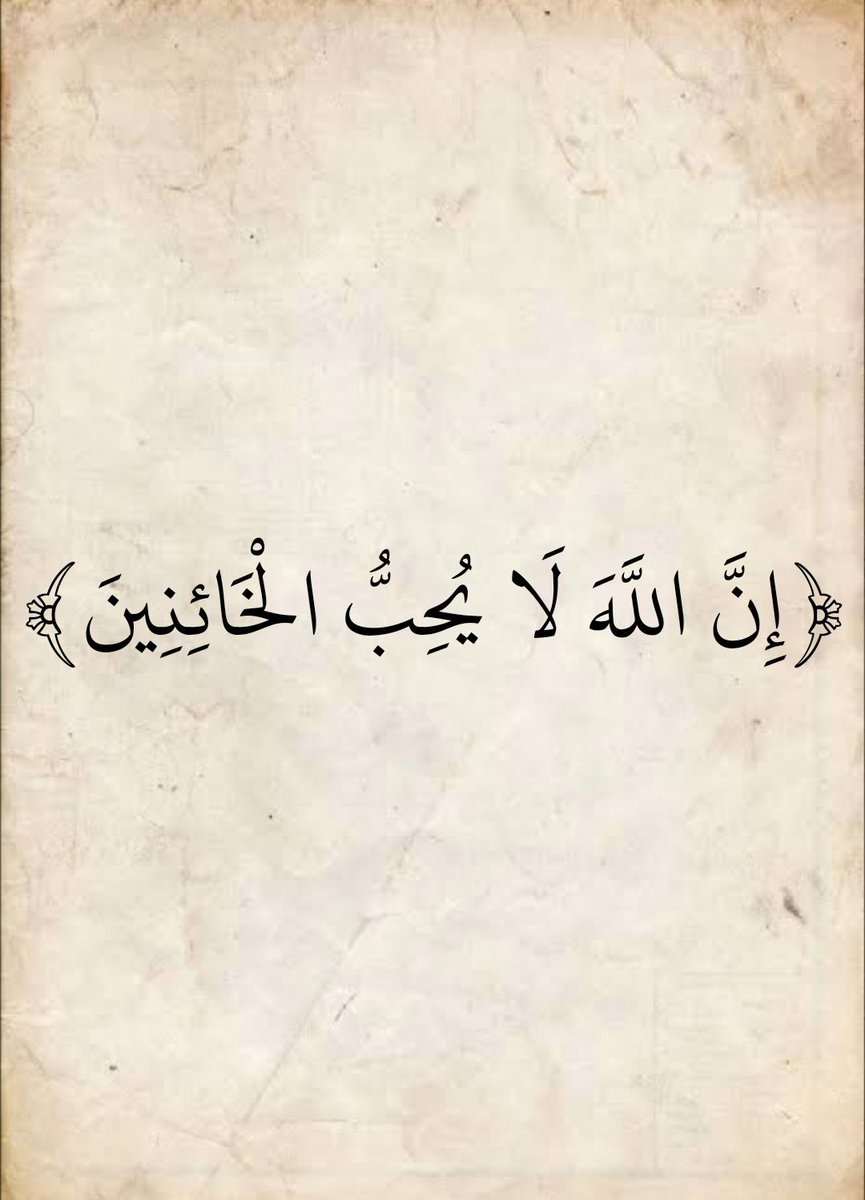 ﴿إِنَّ اللَّهَ لَا يُحِبُّ الْخَائِنِينَ﴾